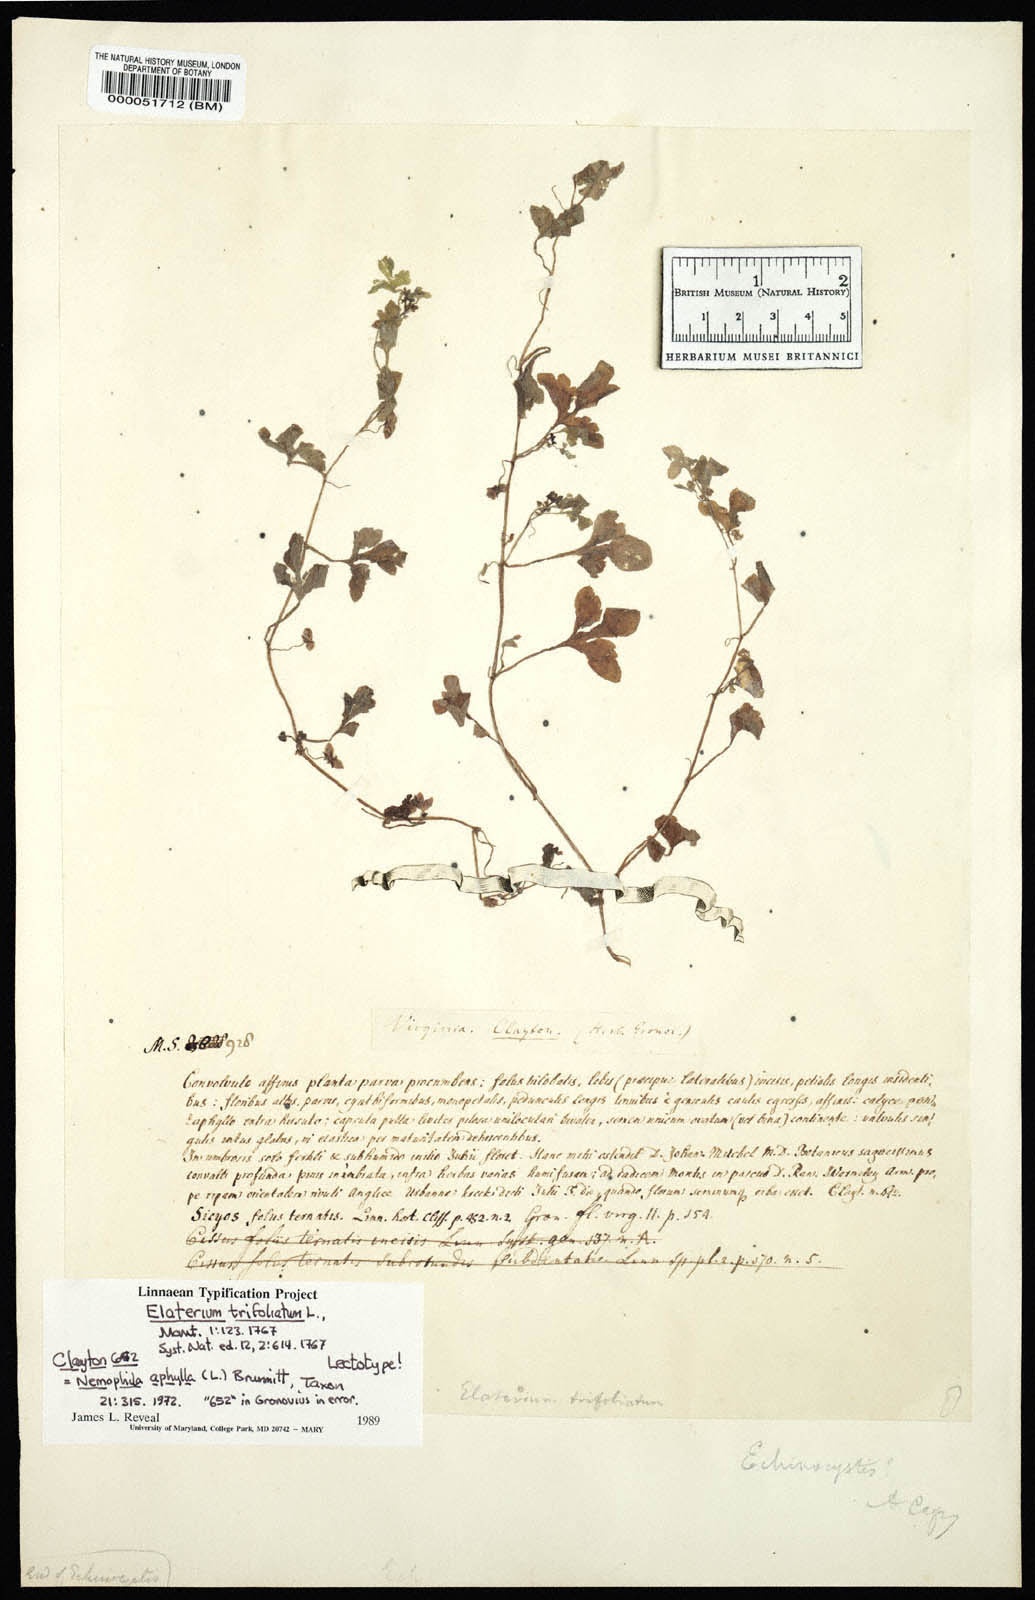 THE NATURAL HISTORY MUSEUM, LONDON
DEPARTMENT OF BOTANY
000051712 (BM)
1 2
BRITISH MUSEUM (NATURAL HISTORY)
1 2 3 4 5
HERBARIUM MUSEI BRITANNICI
Virginia. Clayton. (Herb. Gronov.)
M.S. 928
Convolvulo affinis planta parva procumbens: foliis trilobatis, lobis (præcipue lateralibus) incisis, petiolis longis insidenti-
bus: floribus albis, parvis, cyathiformibus, monopetalis, pedunculis longis tenuibus è geniculis caulis egressis, affixis: calyce pen-
taphyllo extra hirsuto: capsula pulla leviter pilosa uniloculari bivalvi, semen unicum ovatum (vel bina) continente: valvulis sin-
gulis intus glabris, vi elastica per maturitatem dehiscentibus.
In umbrosis solo fertili & subhumido initio Julii floret. Hanc mihi ostendit D. Johan Mitchel M.D. Botanicus sagacissimus
convalli profunda pinis inumbrata, infra herbas varias humifusam; ad radicem montis in pascuo D. Ran. Armi. pro-
pe ripam orientalem rivuli Anglice Urbanna creek dicti Julii die, quando florum seminumq orba esset. Clayt. n. 652.
Sicyos foliis ternatis. Linn. hort. Cliff. p. 452. n. 2. Gron. fl. virg. 11. p. 154.
Cissus foliis ternatis incisis Linn Syst. gen. 137. n. A.
Cissus foliis ternatis subrotundis subdentatis Linn Sp pl. 2. p. 170. n. 5.
Linnaean Typification Project
Elaterium trifoliatum L.,
Mant. 1:123. 1767
Syst. Nat. ed. 12, 2:614. 1767
Clayton 652 Lectotype!
= Nemophila aphylla (L.) Brummitt, Taxon
21: 315. 1972. "652" in Gronovius in error.
James L. Reveal 1989
University of Maryland, College Park, MD 20742 – MARY
Elaterium trifoliatum
Echinocystis!
End of Echinocystis
Ech